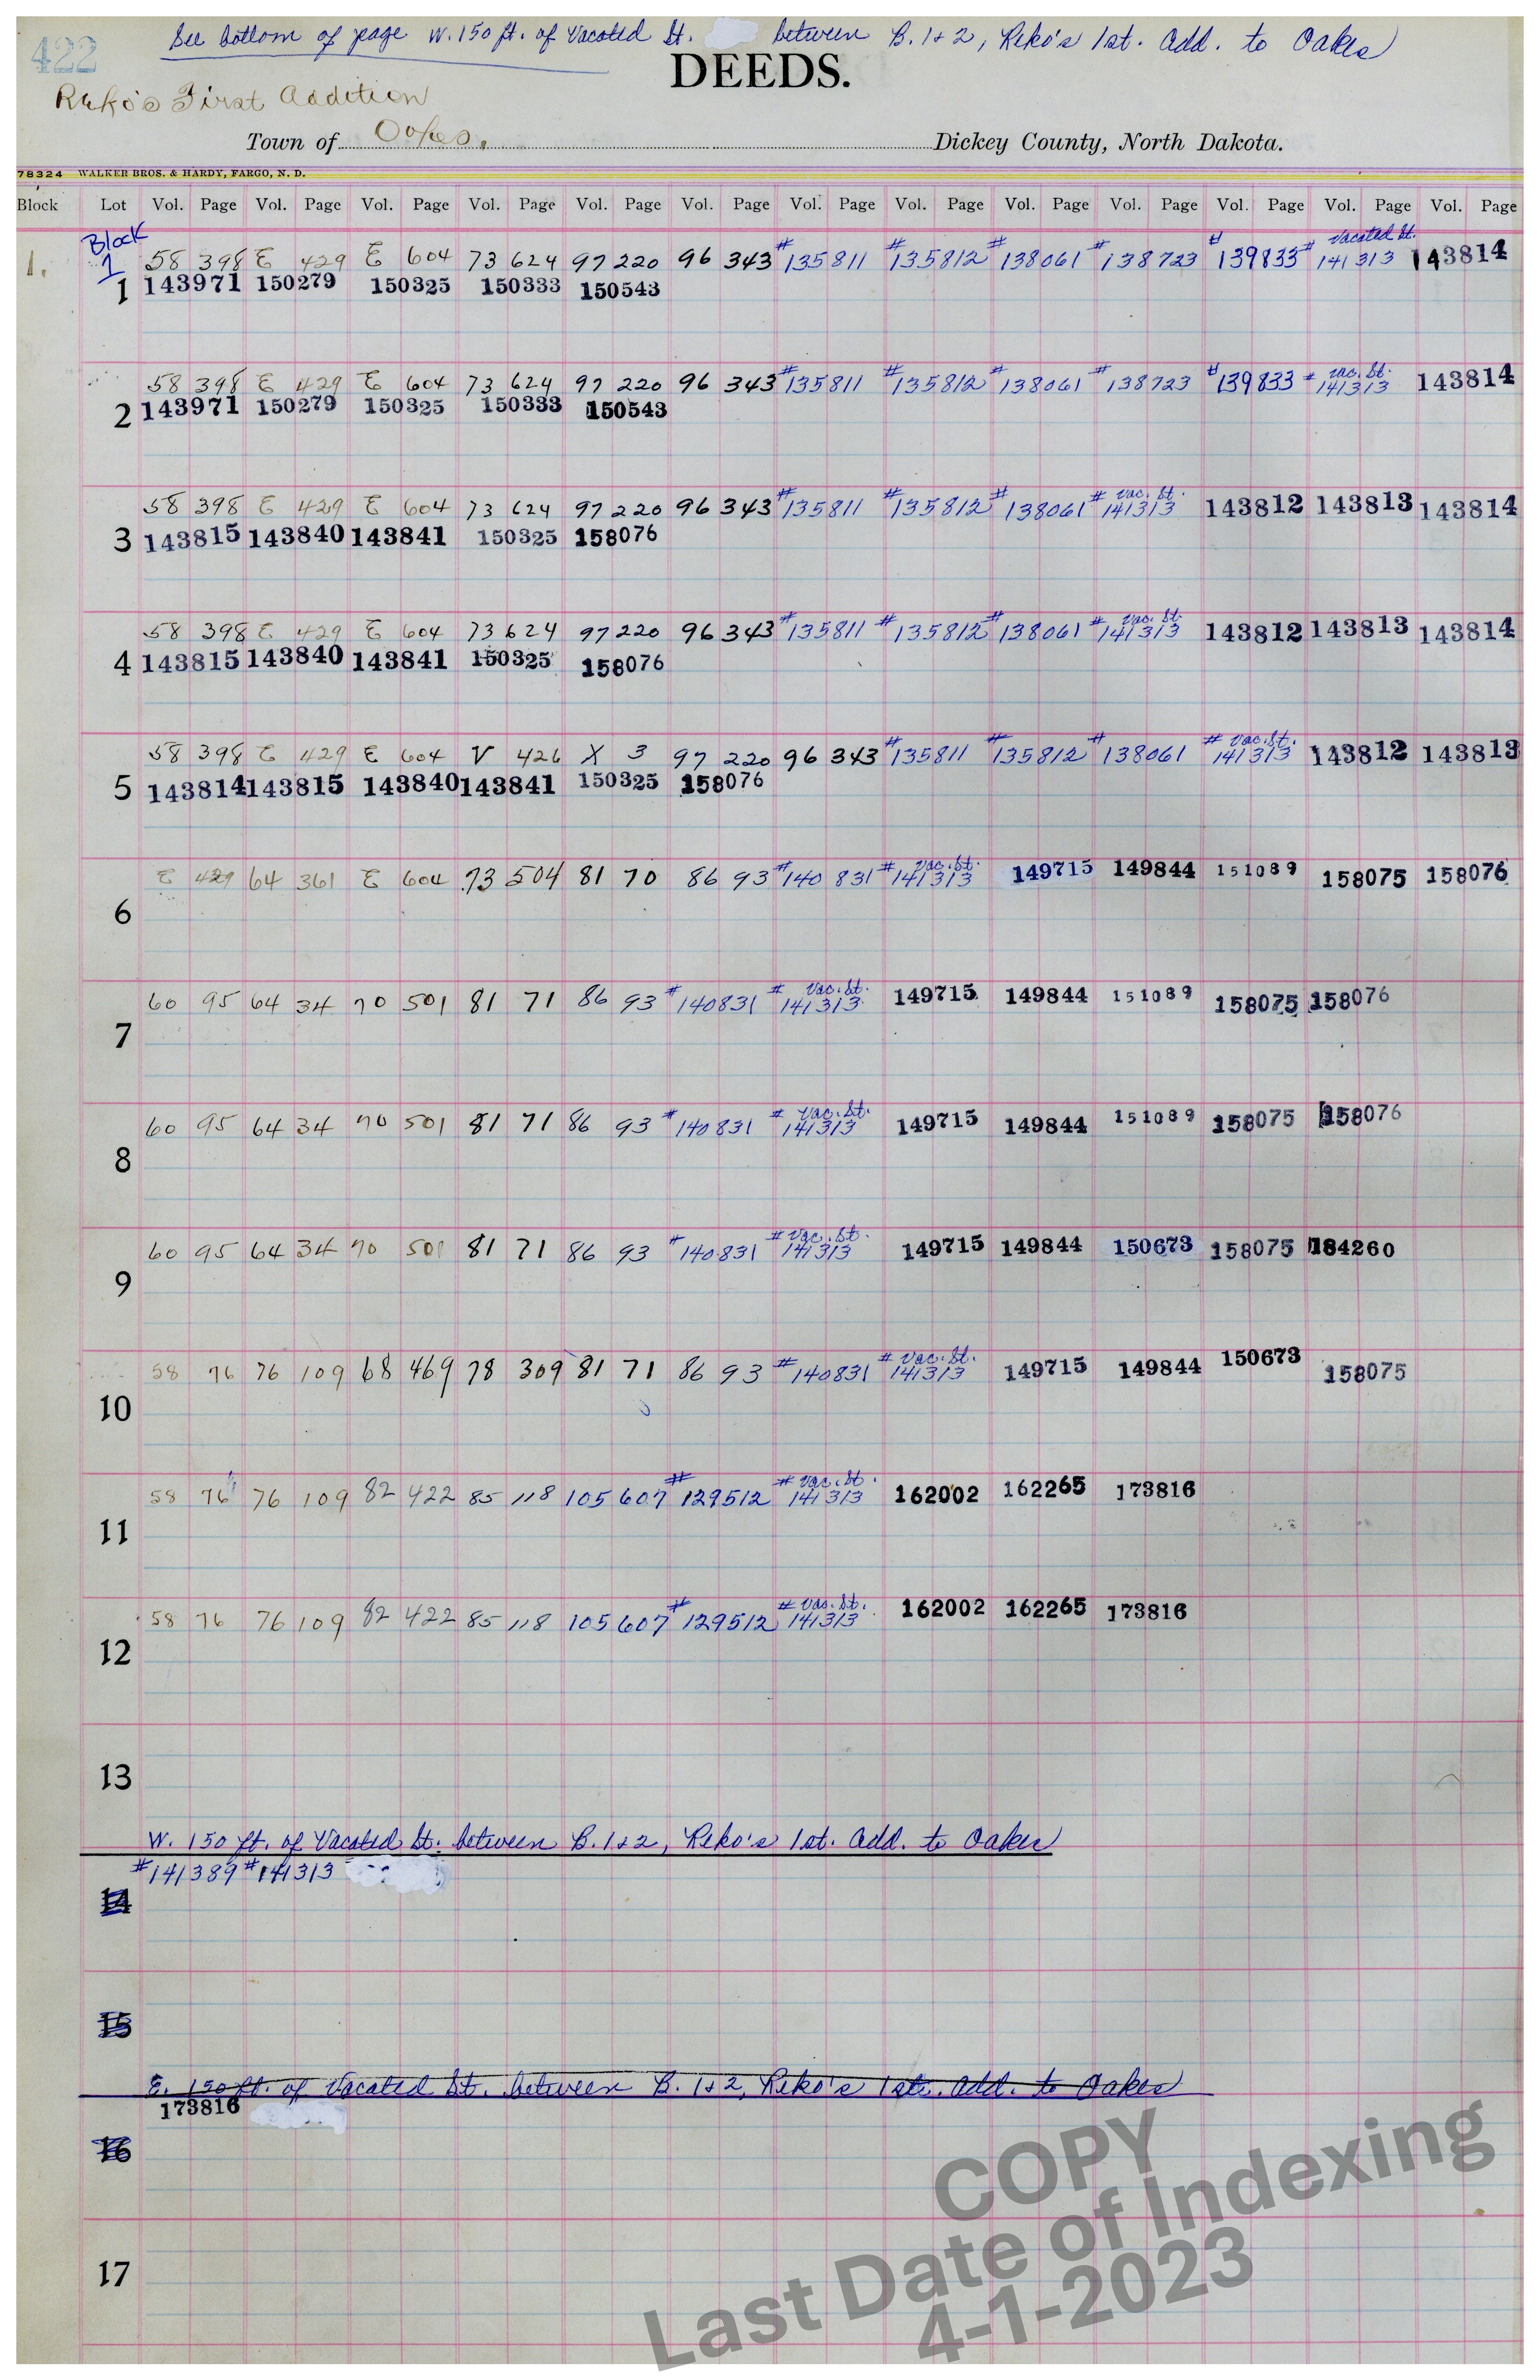 422
See bottom of page W. 150 ft. of Vacated St. between B. 1+2, Reko's 1st. Add. to Oakes
DEEDS.
Reko's First Addition
Town of Oakes. Dickey County, North Dakota.
78324 WALKER BROS. & HARDY, FARGO, N. D.
Block Lot Vol. Page Vol. Page Vol. Page Vol. Page Vol. Page Vol. Page Vol. Page Vol. Page Vol. Page Vol. Page Vol. Page Vol. Page Vol. Page
Block Vacated St.
1. 1 58 398 E 429 E 604 73 624 97 220 96 343 #135811 #135812 #138061 #138723 #139833 #141313 143814
1 143971 150279 150325 150333 150543
vac. St.
58 398 E 429 E 604 73 624 97 220 96 343 #135811 #135812 #138061 #138723 #139833 #141313 143814
2 143971 150279 150325 150333 150543
vac. St.
58 398 E 429 E 604 73 624 97 220 96 343 #135811 #135812 #138061 #141313 143812 143813 143814
3 143815 143840 143841 150325 158076
vac. St.
58 398 E 429 E 604 73 624 97 220 96 343 #135811 #135812 #138061 #141313 143812 143813 143814
4 143815 143840 143841 150325 158076
vac. St.
58 398 E 429 E 604 V 426 X 3 97 220 96 343 #135811 #135812 #138061 #141313 143812 143813
5 143814 143815 143840 143841 150325 158076
vac. St.
E 429 64 361 E 604 73 504 81 70 86 93 #140831 #141313 149715 149844 151089 158075 158076
6
vac. St.
60 95 64 34 70 501 81 71 86 93 #140831 #141313 149715 149844 151089 158075 158076
7
vac. St.
60 95 64 34 70 501 81 71 86 93 #140831 #141313 149715 149844 151089 158075 158076
8
vac. St.
60 95 64 34 70 501 81 71 86 93 #140831 #141313 149715 149844 150673 158075 184260
9
vac. St.
58 76 76 109 68 469 78 309 81 71 86 93 #140831 #141313 149715 149844 150673 158075
10
vac. St.
58 76 76 109 82 422 85 118 105 607 #129512 #141313 162002 162265 173816
11
vac. St.
58 76 76 109 82 422 85 118 105 607 #129512 #141313 162002 162265 173816
12
13
W. 150 ft. of Vacated St. between B. 1+2, Reko's 1st. Add. to Oakes
#141389 #141313
14
15
E. 150 ft. of Vacated St. between B. 1+2, Reko's 1st. Add. to Oakes
173816
16
17
COPY
Last Date of Indexing
4-1-2023